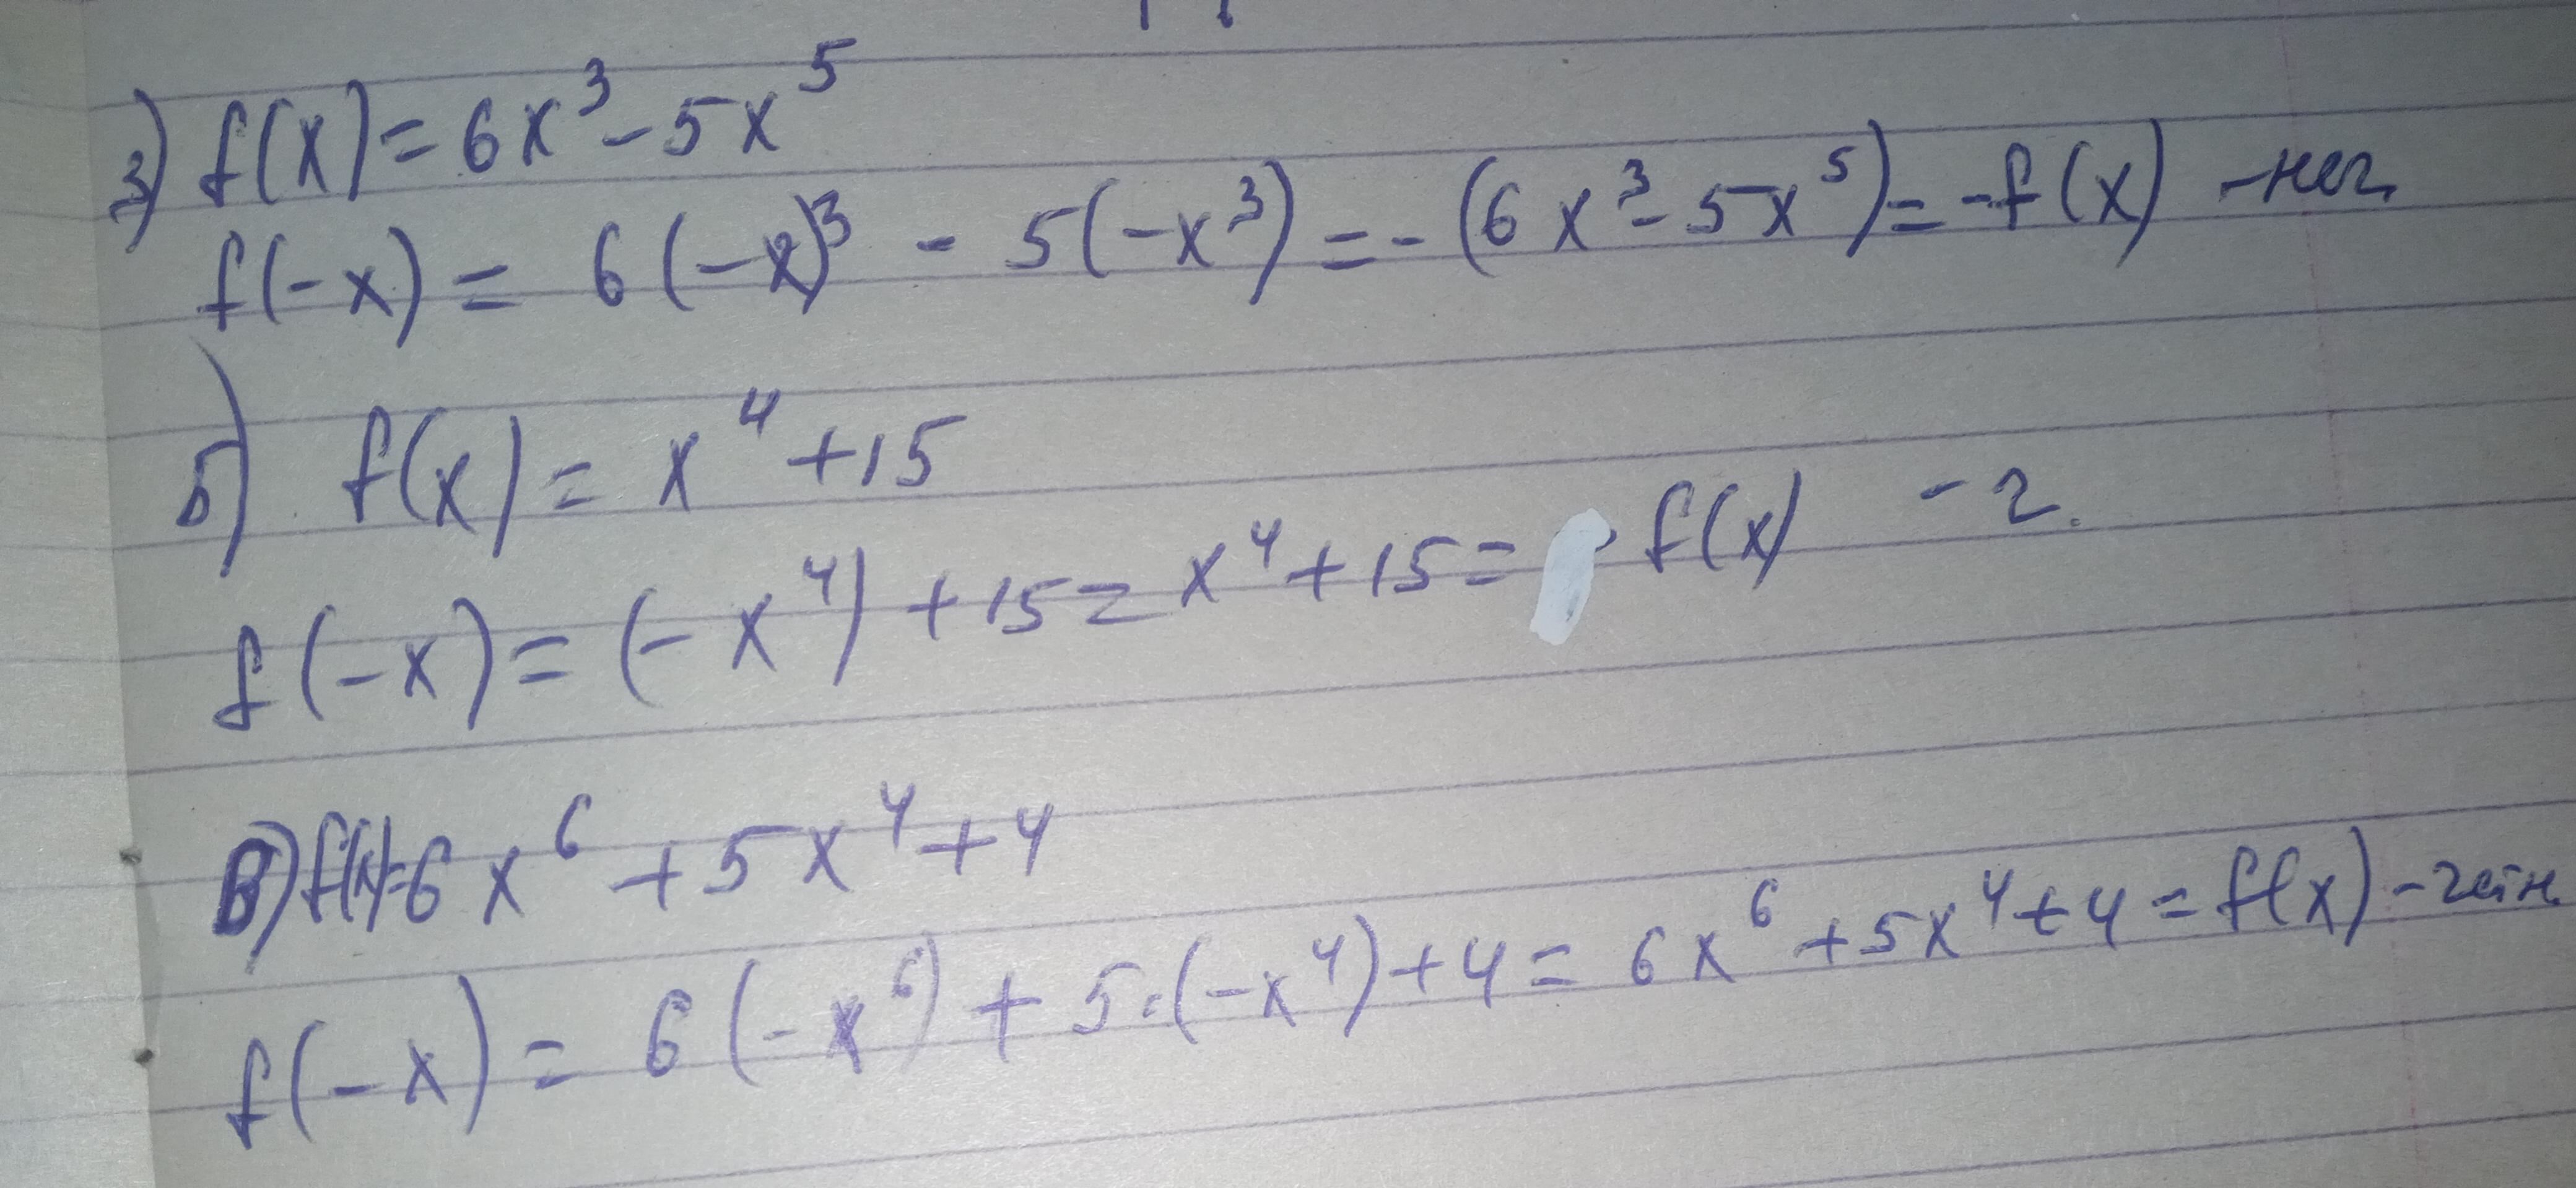 3) f(x) = 6x³ - 5x⁵
f(-x) = 6(-x)³ - 5(-x³) = -(6x³ - 5x⁵) = -f(x) - неч.
б) f(x) = x⁴ + 15
f(-x) = (-x⁴) + 15 = x⁴ + 15 = f(x) - ч.
В) f(x)=6x⁶ + 5x⁴ + 4
f(-x) = 6(-x⁶) + 5·(-x⁴) + 4 = 6x⁶ + 5x⁴ + 4 = f(x) - четн.